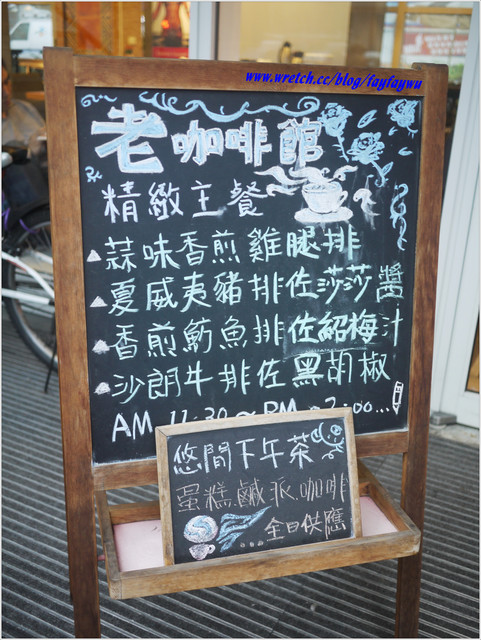 www.wretch.cc/blog/fayfaywu
老咖啡館
精緻主餐
蒜味香煎雞腿排
夏威夷豬排佐莎莎醬
香煎魴魚排佐紹梅汁
沙朗牛排佐黑胡椒
AM 11:30~PM 2:00...
悠閒下午茶
蛋糕.鹹派.咖啡
全日供應